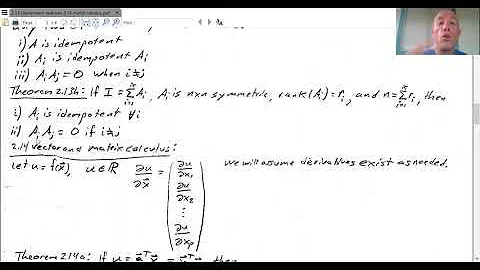 i) A is idempotent
ii) A_i is idempotent A_i
iii) A_i A_j = 0 when i≠j
Theorem 2.13h: if I = Σ_{i=1}^{k} A_i, A_i is n×n symmetric, rank(A_i) = r_i, and n = Σ_{i=1}^{k} r_i, then
i) A_i is idempotent ∀i
ii) A_i A_j = 0 if i≠j
2.14 vector and matrix calculus:
Let u = f(x⃗), u∈ℝ ∂u/∂x⃗ = (∂u/∂x_1 ∂u/∂x_2 ⋮ ∂u/∂x_p) we will assume derivatives exist as needed.
Theorem 2.14a: if u = a⃗^T x⃗ = x⃗^T a⃗, then